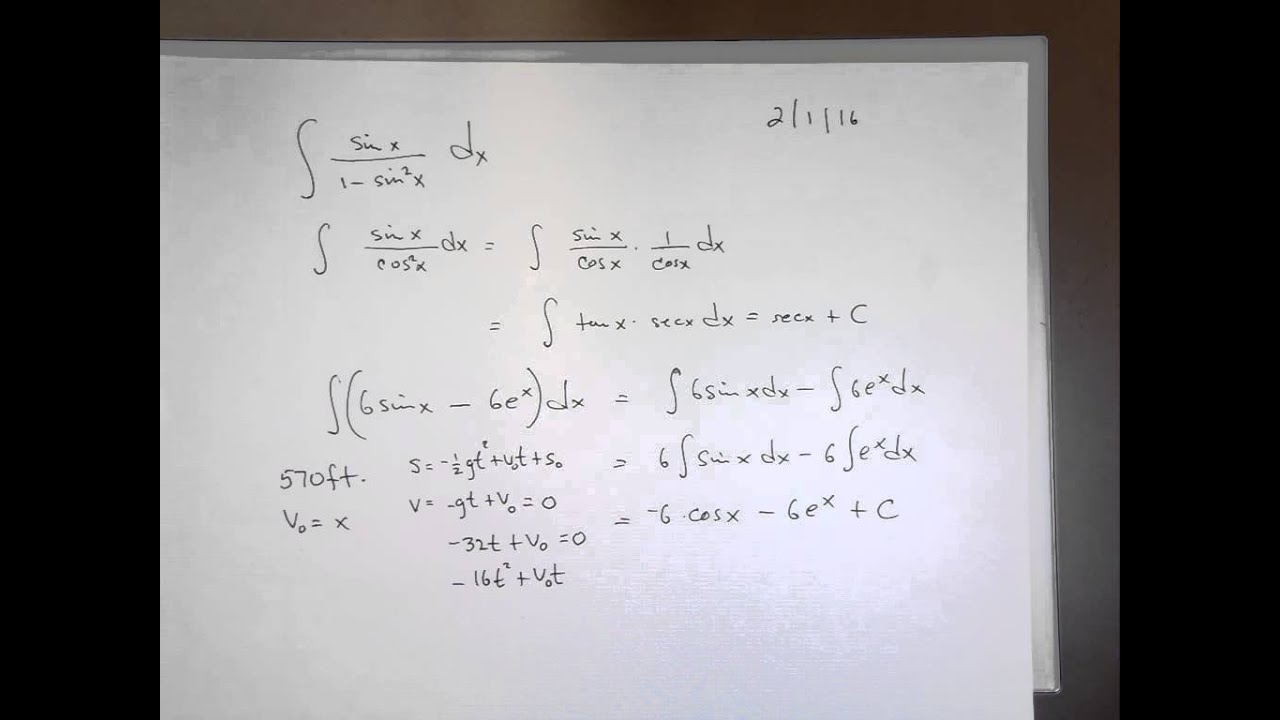 2/1/16
∫ sin x / (1 - sin²x) dx
∫ sin x / cos²x dx = ∫ sin x / cos x · 1 / cos x dx
= ∫ tan x · sec x dx = sec x + C
∫(6 sin x - 6e^x) dx = ∫ 6 sin x dx - ∫ 6e^x dx
= 6 ∫ sin x dx - 6 ∫ e^x dx
= -6 · cos x - 6e^x + C
570 ft.
V₀ = x
S = -½gt² + V₀t + S₀
V = -gt + V₀ = 0
-32t + V₀ = 0
-16t² + V₀t